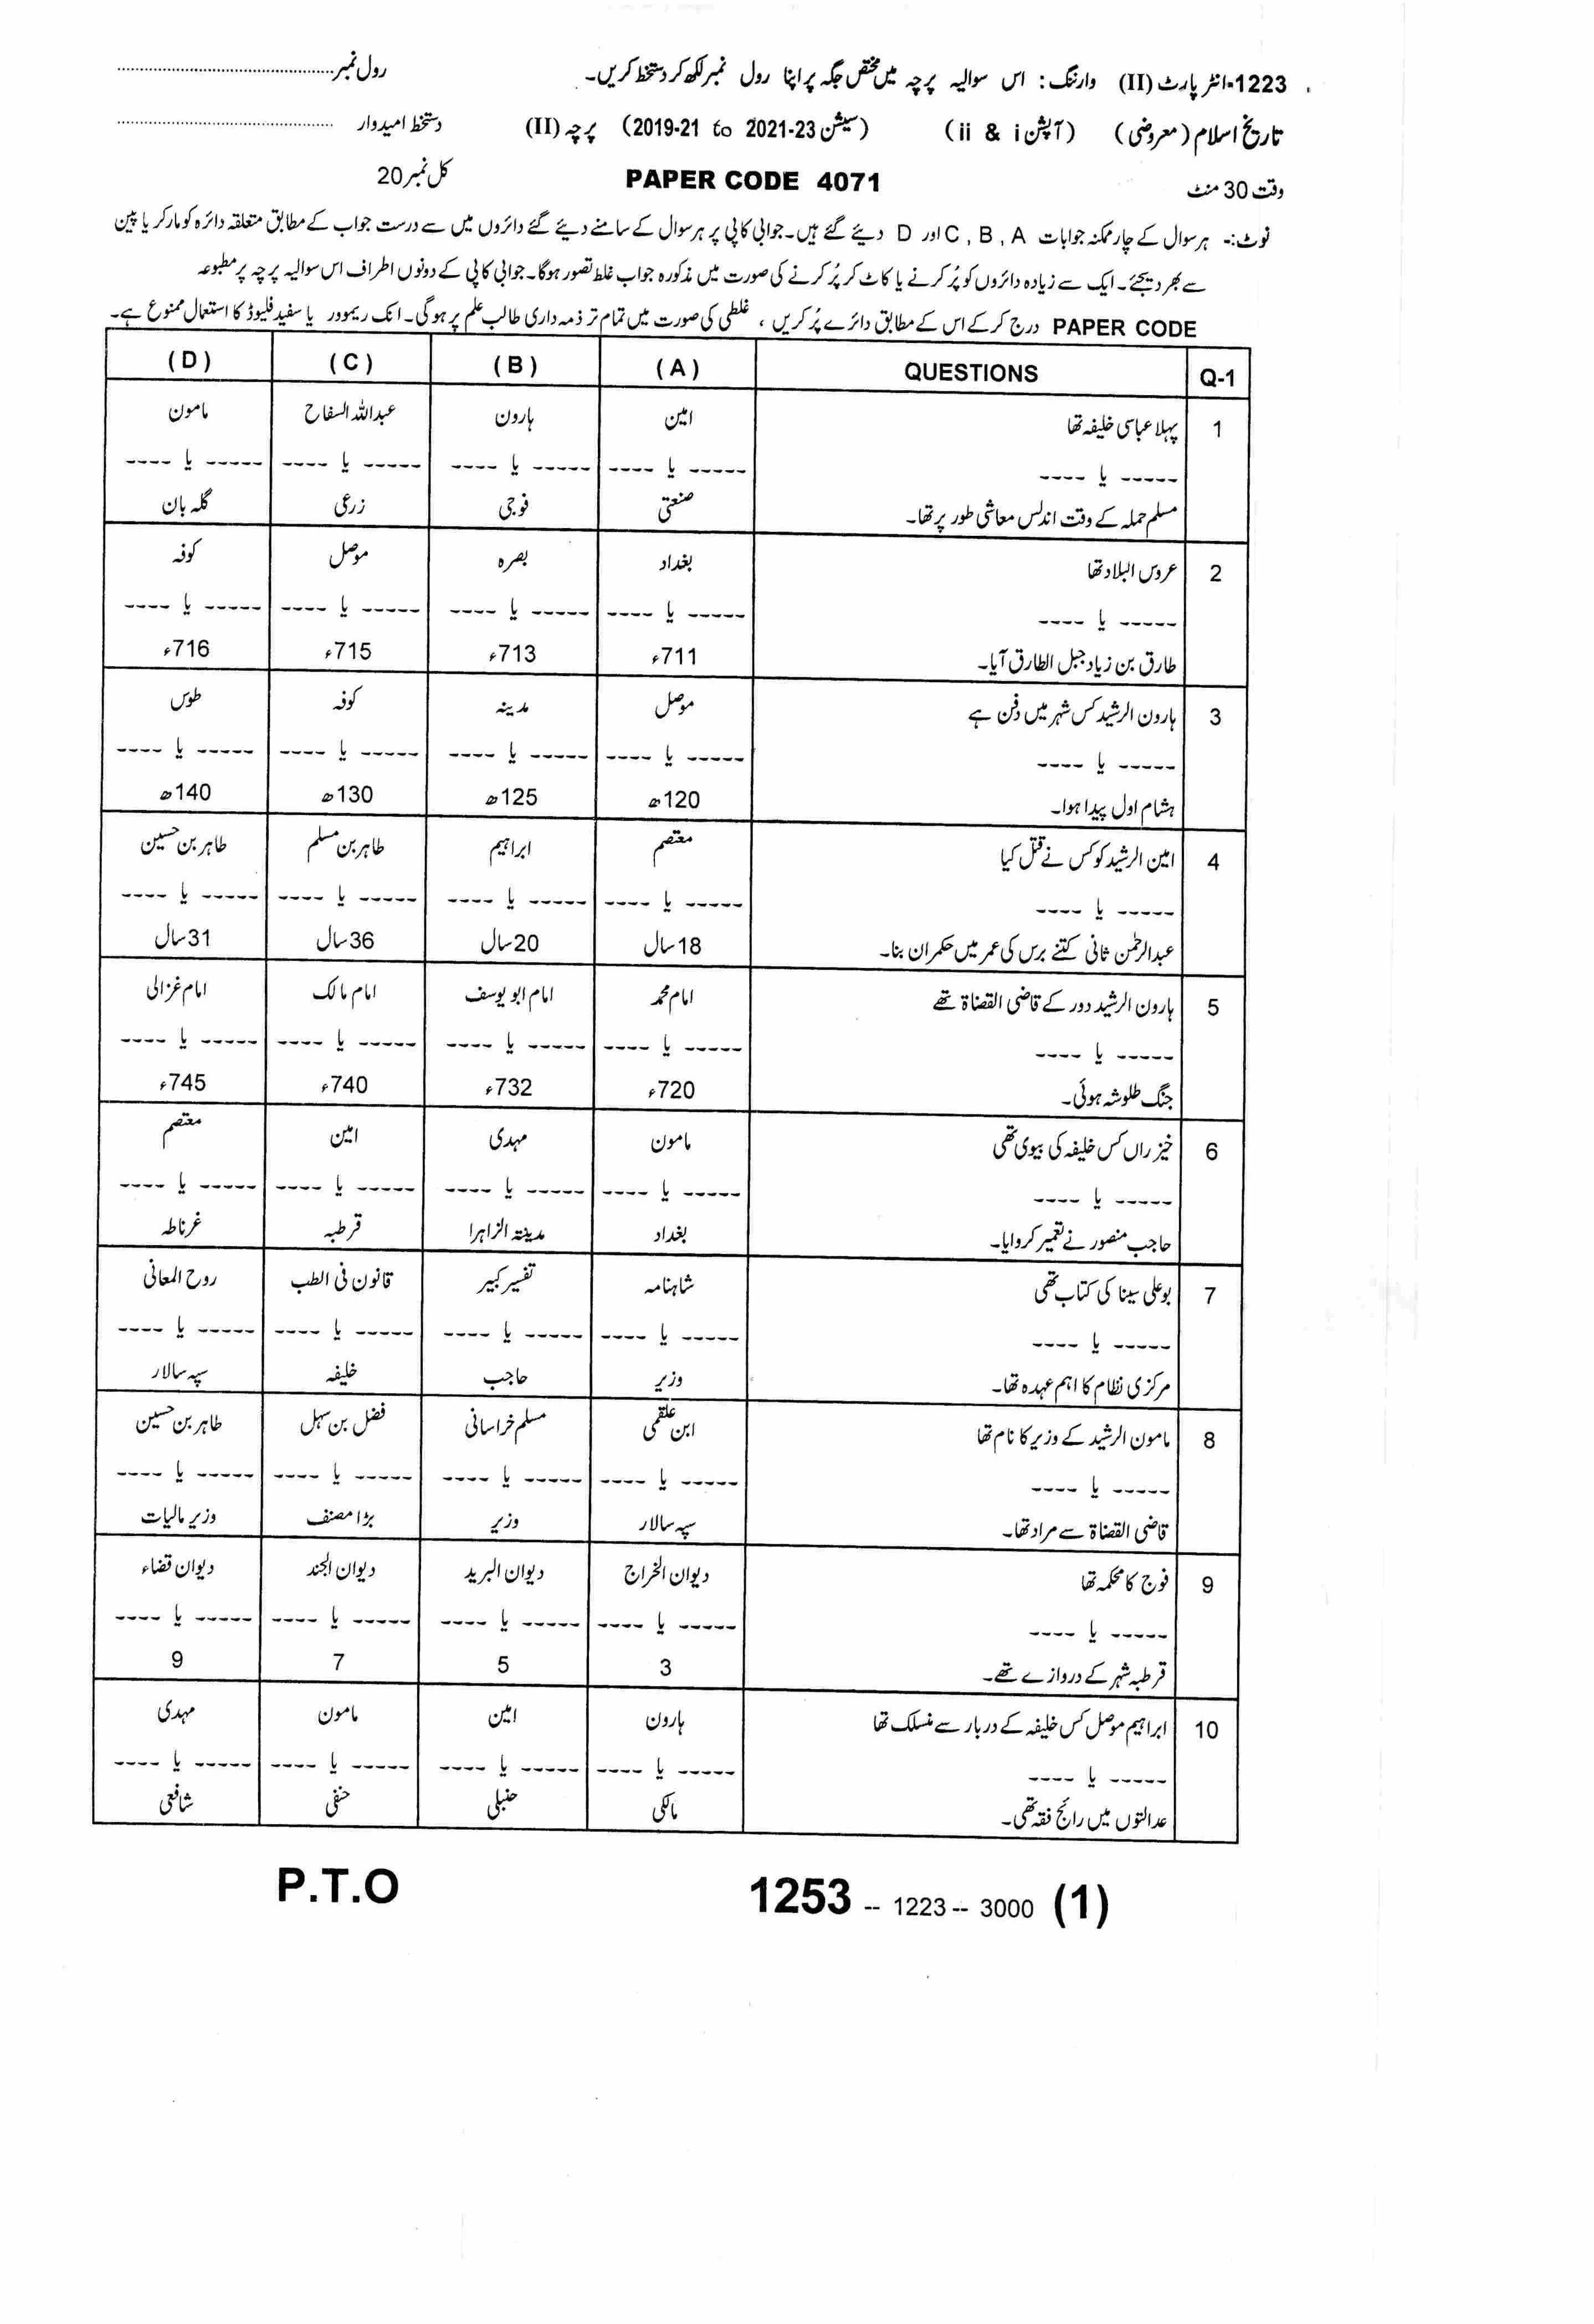 1223-انٹر پارٹ (II) وارننگ: اس سوالیہ پرچہ میں مختص جگہ پر اپنا رول نمبر لکھ کر دستخط کریں۔ رول نمبر
تاریخ اسلام (معروضی) (آپشن i & ii) (سیشن 2019-21 to 2021-23) پرچہ (II) دستخط امیدوار
وقت 30 منٹ PAPER CODE 4071 کل نمبر 20
نوٹ:- ہر سوال کے چار ممکنہ جوابات A , B , C اور D دیئے گئے ہیں۔ جوابی کاپی پر ہر سوال کے سامنے دیئے گئے دائروں میں سے درست جواب کے مطابق متعلقہ دائرہ کو مارکر یا پین
سے بھر دیجئے۔ ایک سے زیادہ دائروں کو پُر کرنے یا کاٹ کر پُر کرنے کی صورت میں مذکورہ جواب غلط تصور ہوگا۔ جوابی کاپی کے دونوں اطراف اس سوالیہ پرچہ پر مطبوعہ
PAPER CODE درج کر کے اس کے مطابق دائرے پُر کریں ، غلطی کی صورت میں تمام تر ذمہ داری طالب علم پر ہوگی۔ انک ریموور یا سفید فلیوڈ کا استعمال ممنوع ہے۔
Q-1 QUESTIONS (A) (B) (C) (D)
1 پہلا عباسی خلیفہ تھا امین ہارون عبداللہ السفاح مامون
---- یا ----- ---- یا ----- ---- یا ----- ---- یا ----- ---- یا -----
مسلم حملہ کے وقت اندلس معاشی طور پر تھا۔ صنعتی فوجی زرعی گلہ بان
2 عروس البلاد تھا بغداد بصرہ موصل کوفہ
---- یا ----- ---- یا ----- ---- یا ----- ---- یا ----- ---- یا -----
طارق بن زیاد جبل الطارق آیا۔ 711ء 713ء 715ء 716ء
3 ہارون الرشید کس شہر میں دفن ہے موصل مدینہ کوفہ طوس
---- یا ----- ---- یا ----- ---- یا ----- ---- یا ----- ---- یا -----
ہشام اول پیدا ہوا۔ 120ھ 125ھ 130ھ 140ھ
4 امین الرشید کو کس نے قتل کیا معتصم ابراہیم طاہر بن مسلم طاہر بن حسین
---- یا ----- ---- یا ----- ---- یا ----- ---- یا ----- ---- یا -----
عبدالرحمٰن ثانی کتنے برس کی عمر میں حکمران بنا۔ 18 سال 20 سال 36 سال 31 سال
5 ہارون الرشید دور کے قاضی القضاۃ تھے امام محمد امام ابو یوسف امام مالک امام غزالی
---- یا ----- ---- یا ----- ---- یا ----- ---- یا ----- ---- یا -----
جنگ طلوشہ ہوئی۔ 720ء 732ء 740ء 745ء
6 خیزراں کس خلیفہ کی بیوی تھی مامون مہدی امین معتصم
---- یا ----- ---- یا ----- ---- یا ----- ---- یا ----- ---- یا -----
حاجب منصور نے تعمیر کروایا۔ بغداد مدینتہ الزاہرا قرطبہ غرناطہ
7 بوعلی سینا کی کتاب تھی شاہنامہ تفسیر کبیر قانون فی الطب روح المعانی
---- یا ----- ---- یا ----- ---- یا ----- ---- یا ----- ---- یا -----
مرکزی نظام کا اہم عہدہ تھا۔ وزیر حاجب خلیفہ سپہ سالار
8 مامون الرشید کے وزیر کا نام تھا ابن علقمی مسلم خراسانی فضل بن سہل طاہر بن حسین
---- یا ----- ---- یا ----- ---- یا ----- ---- یا ----- ---- یا -----
قاضی القضاۃ سے مراد تھا۔ سپہ سالار وزیر بڑا مصنف وزیر مالیات
9 فوج کا محکمہ تھا دیوان الخراج دیوان البرید دیوان الجند دیوان قضاء
---- یا ----- ---- یا ----- ---- یا ----- ---- یا ----- ---- یا -----
قرطبہ شہر کے دروازے تھے۔ 3 5 7 9
10 ابراہیم موصل کس خلیفہ کے دربار سے منسلک تھا ہارون امین مامون مہدی
---- یا ----- ---- یا ----- ---- یا ----- ---- یا ----- ---- یا -----
عدالتوں میں رائج فقہ تھی۔ مالکی حنبلی حنفی شافعی
P.T.O 1253 -- 1223 -- 3000 (1)